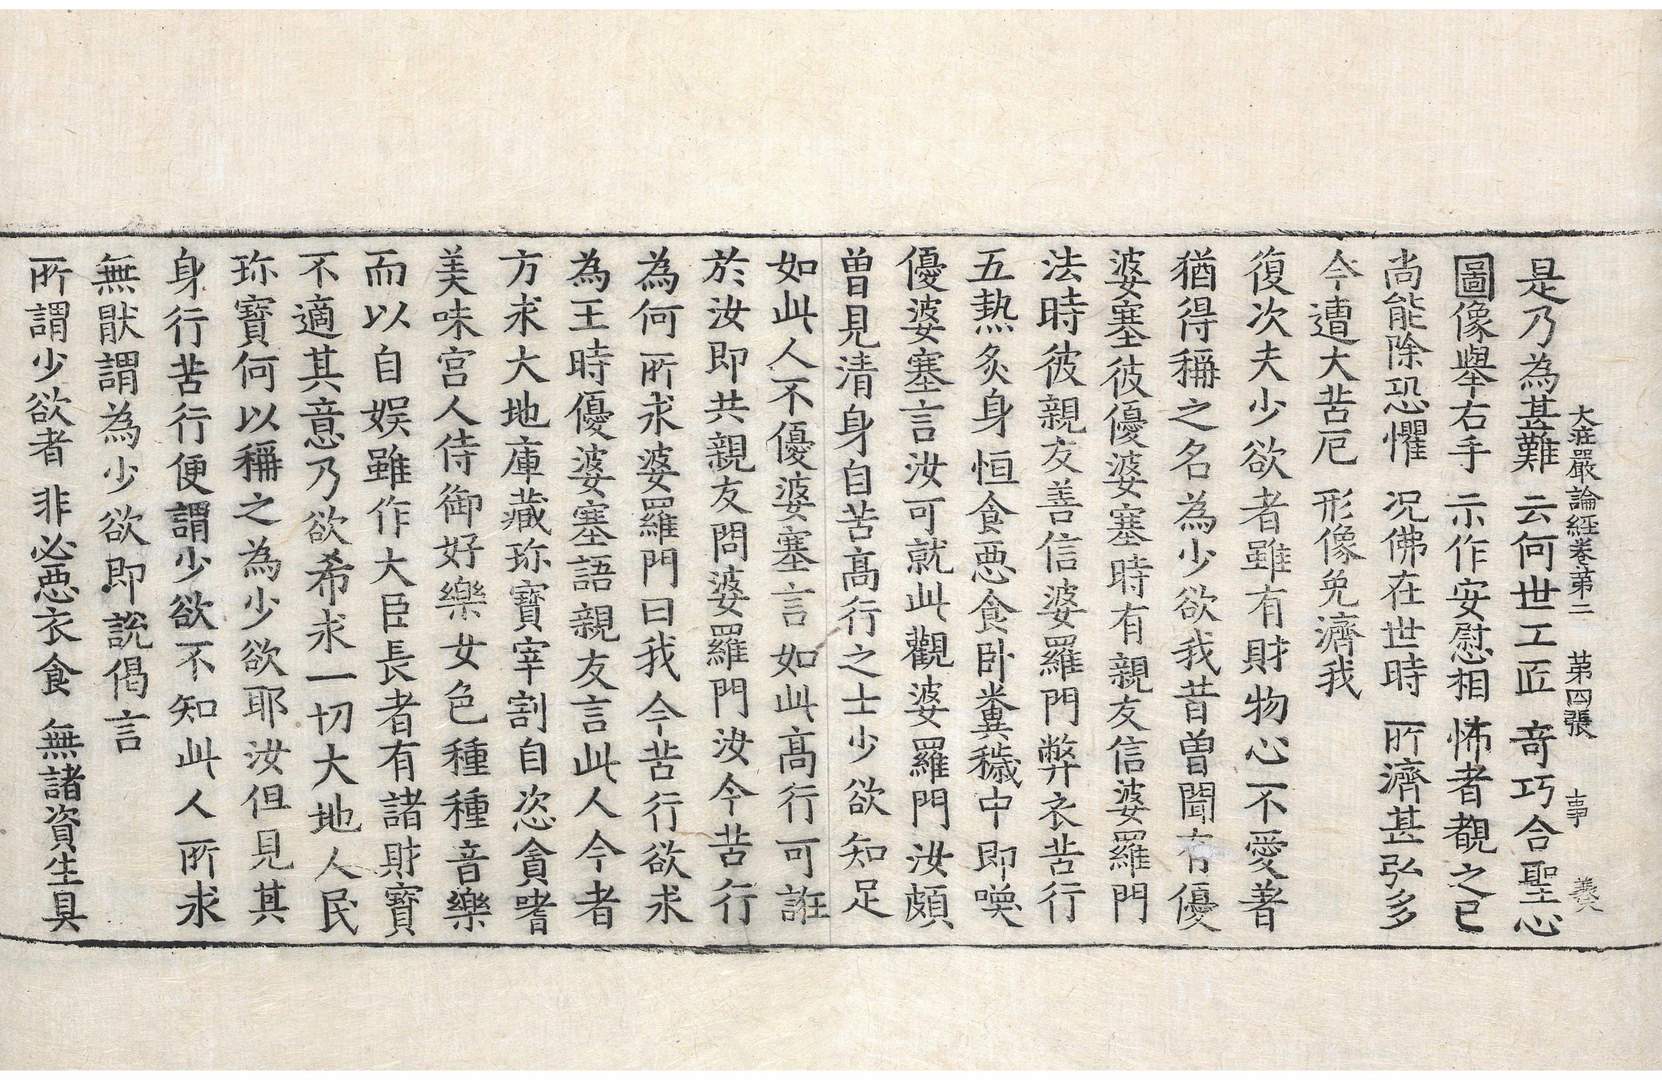 大莊嚴論經卷第二　第四張　事　義天
是乃為甚難　云何世工匠　奇巧合聖心
圖像舉右手　示作安慰相　怖者覩之已
尚能除恐懼　况佛在世時　所濟甚弘多
今遭大苦厄　形像免濟我
復次夫少欲者雖有財物心不愛著
猶得稱之名為少欲我昔曽聞有優
婆塞彼優婆塞時有親友信婆羅門
法時彼親友善信婆羅門弊衣苦行
五熱炙身恒食惡食卧糞穢中即喚
優婆塞言汝可就此觀婆羅門汝頗
曽見清身自苦高行之士少欲知足
如此人不優婆塞言如此高行可誑
於汝即共親友問婆羅門汝今苦行
為何所求婆羅門曰我今苦行欲求
為王時優婆塞語親友言此人今者
方求大地庫藏珎寶宰割自恣貪嗜
美味宮人侍御好樂女色種種音樂
而以自娛雖作大臣長者有諸財寶
不適其意乃欲希求一切大地人民
珎寶何以稱之為少欲耶汝但見其
身行苦行便謂少欲不知此人所求
無猒謂為少欲即說偈言
所謂少欲者　非必惡衣食　無諸資生具